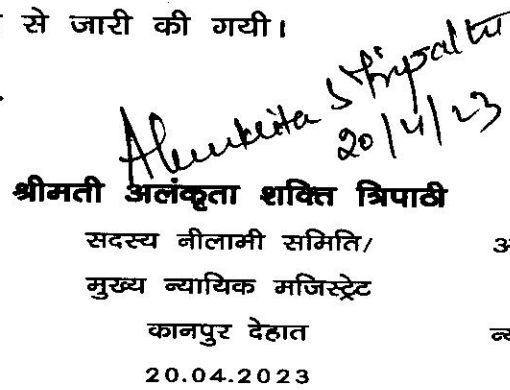 से जारी की गयी।
Alankrita S Tripathi
20/4/23
श्रीमती अलंकृता शक्ति त्रिपाठी
सदस्य नीलामी समिति/
मुख्य न्यायिक मजिस्ट्रेट
कानपुर देहात
20.04.2023